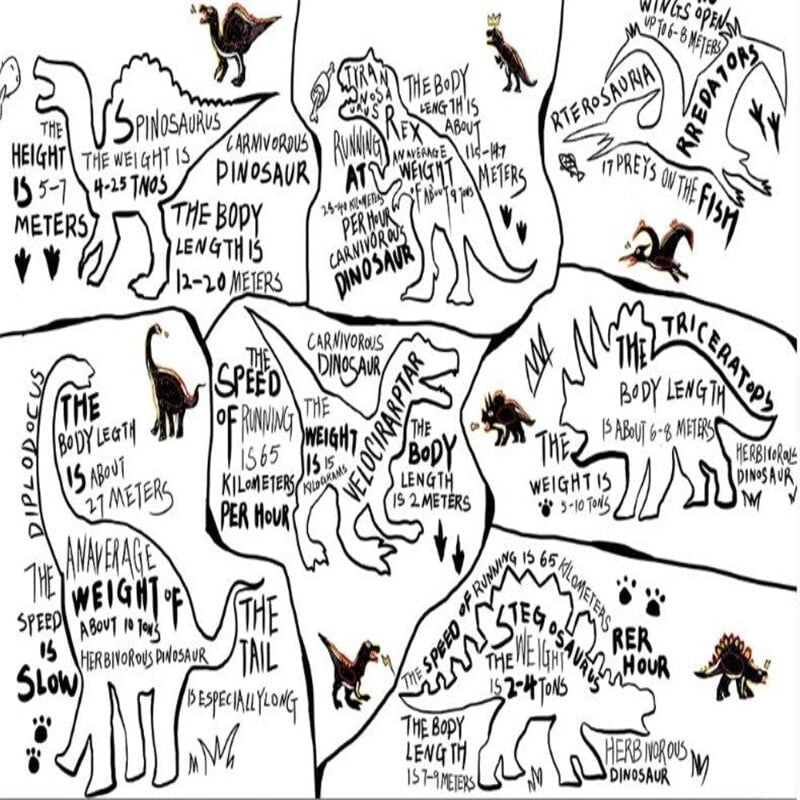 SPINOSAURUS
THE
HEIGHT
IS 5-7
METERS
THE WEIGHT IS
4-25 TNOS
CARNIVOROUS
DINOSAUR
THE BODY
LENGTH IS
12-20 METERS
TYRAN
NOSA
URUS
REX
THE BODY
LENGTH IS
ABOUT
METERS
RUNNING
AT
PER HOUR
CARNIVOROUS
DINOSAUR
AN AVERAGE
WEIGHT
OF ABOUT 9 TONS
WINGS OPEN
UP TO 6-8 METERS
PTEROSAURIA
RREDATORS
17 PREYS ON THE FISH
DIPLODOCUS
THE
BODY LEGTH
IS ABOUT
27 METERS
AN AVERAGE
WEIGHT OF
ABOUT 10 TONS
HERBIVOROUS DINOSAUR
THE
SPEED
IS
SLOW
THE
TAIL
IS ESPECIALLY LONG
THE
SPEED
OF RUNNING
IS 65
KILOMETERS
PER HOUR
CARNIVOROUS
DINOSAUR
THE
WEIGHT
IS 15
KILOGRAMS
VELOCIRARPTAR
THE
BODY
LENGTH
IS 2 METERS
THE TRICERATOPS
BODY LENGTH
IS ABOUT 6-8 METERS
THE
WEIGHT IS
5-10 TONS
HERBIVOROUS
DINOSAUR
THE SPEED OF RUNNING IS 65 KILOMETERS
RER
HOUR
STEGOSAURUS
THE WEIGHT
IS 2-4 TONS
THE BODY
LENGTH
IS 7-9 METERS
HERBIVOROUS
DINOSAUR